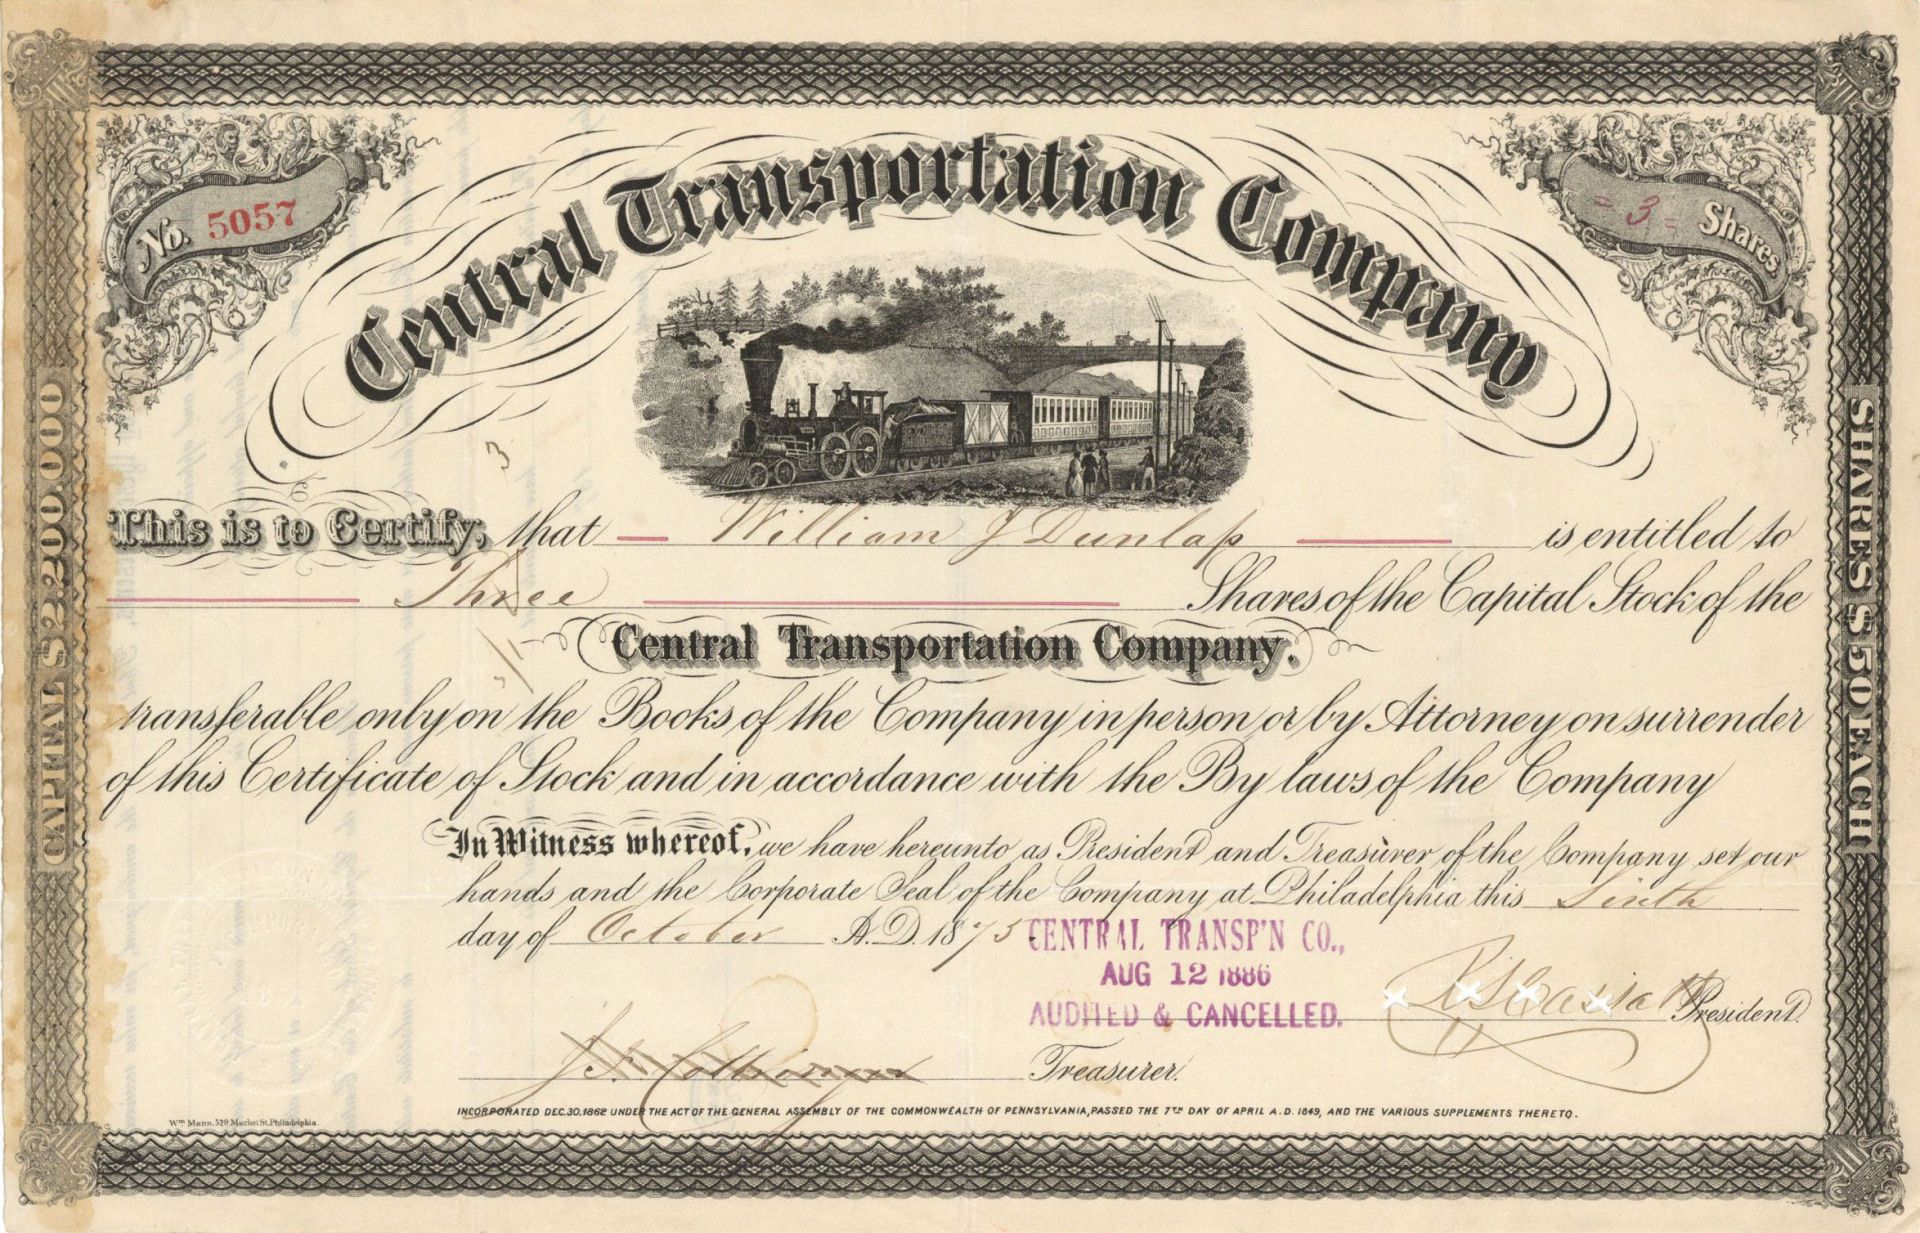 No. 5057
= 3 = Shares
Central Transportation Company
CAPITAL $2,200,000
SHARES $50 EACH
3
This is to Certify, that William J Dunlap is entitled to
Three Shares of the Capital Stock of the
Central Transportation Company.
transferable only on the Books of the Company in person or by Attorney on surrender
of this Certificate of Stock and in accordance with the By laws of the Company
In Witness whereof, we have hereunto as President and Treasurer of the Company set our
hands and the Corporate Seal of the Company at Philadelphia this Sixth
day of October A.D. 1875
CENTRAL TRANSP'N CO.,
AUG 12 1886
AUDITED & CANCELLED.
President.
Treasurer.
INCORPORATED DEC. 30. 1862 UNDER THE ACT OF THE GENERAL ASSEMBLY OF THE COMMONWEALTH OF PENNSYLVANIA, PASSED THE 7TH DAY OF APRIL A.D. 1849, AND THE VARIOUS SUPPLEMENTS THERETO.
Wm Mann, 529 Market St. Philadelphia